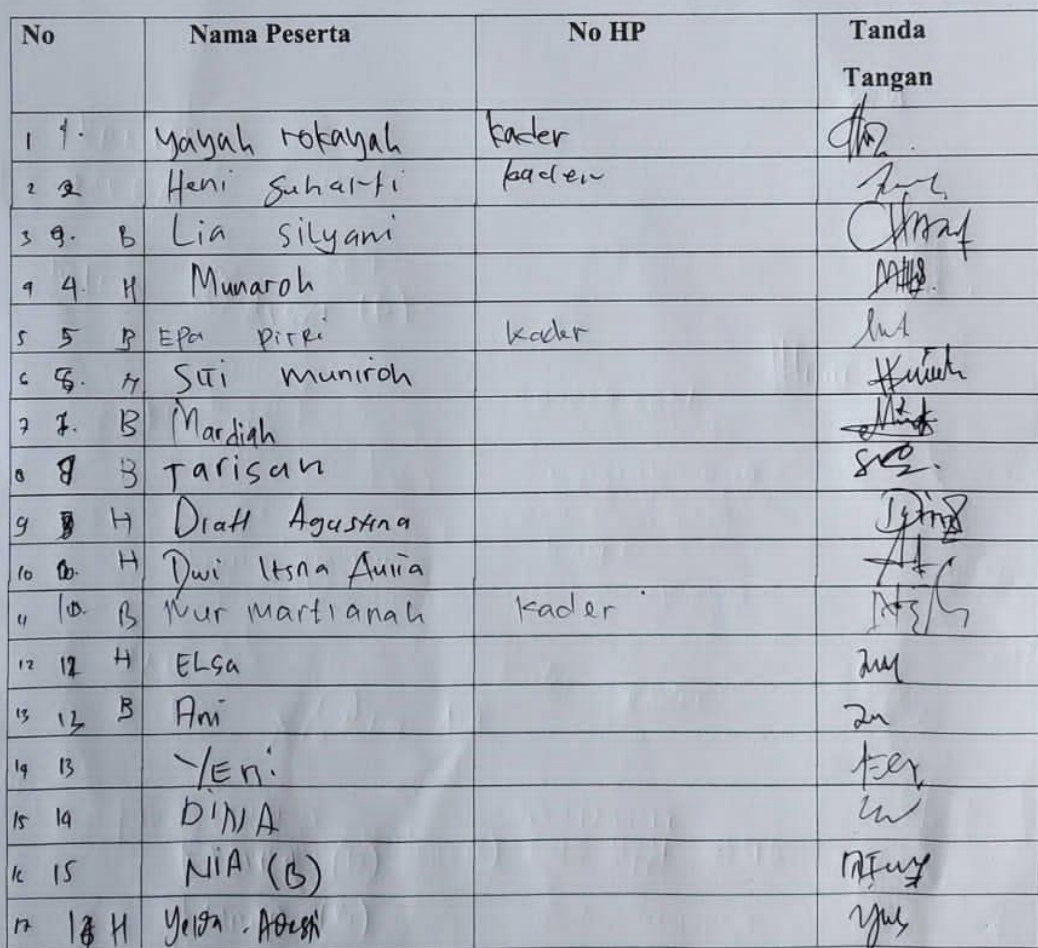 No Nama Peserta No HP Tanda Tangan
1 1. Yayah rokayah kader
2 2 Heni Suharti kader
3 3. B Lia Silyani
4 4. H Munaroh
5 5 B Epa Pitri kader
6 6. H Siti muniroh
7 7. B Mardiah
8 8 B Tarisan
9 H Diah Agustina
10 10. H Dwi Itsna Aulia
11 10. B Nur martianah kader
12 12 H ELSa
13 12 B Ani
14 13 YEni
15 14 DINA
16 15 NIA (B)
17 H